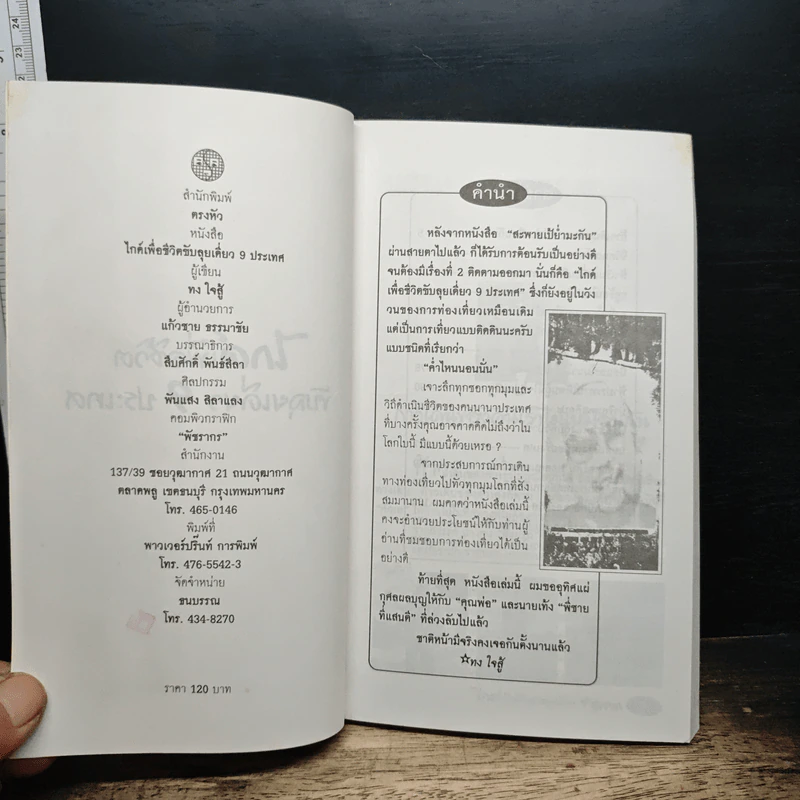 สำนักพิมพ์
ตรงหัว
หนังสือ
ไกด์เพื่อชีวิตขับลุยเดี่ยว 9 ประเทศ
ผู้เขียน
ทง ใจสู้
ผู้อำนวยการ
แก้วชาย ธรรมาชัย
บรรณาธิการ
สืบศักดิ์ พันธ์สีลา
ศิลปกรรม
พันแสง สิลาแลง
คอมพิวกราฟิก
"พัชรากร"
สำนักงาน
137/39 ซอยวุฒากาศ 21 ถนนวุฒากาศ
ตลาดพลู เขตธนบุรี กรุงเทพมหานคร
โทร. 465-0146
พิมพ์ที่
พาวเวอร์ปริ๊นท์ การพิมพ์
โทร. 476-5542-3
จัดจำหน่าย
ธนบรรณ
โทร. 434-8270
ราคา 120 บาท
คำนำ
หลังจากหนังสือ "สะพายเป้ย่ำมะกัน"
ผ่านสายตาไปแล้ว ก็ได้รับการต้อนรับเป็นอย่างดี
จนต้องมีเรื่องที่ 2 ติดตามออกมา นั่นก็คือ "ไกด์
เพื่อชีวิตขับลุยเดี่ยว 9 ประเทศ" ซึ่งก็ยังอยู่ในวัง
วนของการท่องเที่ยวเหมือนเดิม
แต่เป็นการเที่ยวแบบติดดินนะครับ
แบบชนิดที่เรียกว่า
"ค่ำไหนนอนนั่น"
เจาะลึกทุกซอกทุกมุมและ
วิถีดำเนินชีวิตของคนนานาประเทศ
ที่บางครั้งคุณอาจคาดคิดไม่ถึงว่าใน
โลกใบนี้ มีแบบนี้ด้วยเหรอ ?
จากประสบการณ์การเดิน
ทางท่องเที่ยวไปทั่วทุกมุมโลกที่สั่ง
สมมานาน ผมคาดว่าหนังสือเล่มนี้
คงจะอำนวยประโยชน์ให้กับท่านผู้
อ่านที่ชมชอบการท่องเที่ยวได้เป็น
อย่างดี
ท้ายที่สุด หนังสือเล่มนี้ ผมขออุทิศแผ่
กุศลผลบุญให้กับ "คุณพ่อ" และนายเท้ง "พี่ชาย
ที่แสนดี" ที่ล่วงลับไปแล้ว
ชาติหน้ามีจริงคงเจอกันดั้งนานแล้ว
☆ทง ใจสู้